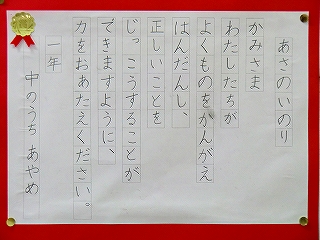 あさのいのり
かみさま
わたしたちが
よくものをかんがえ
はんだんし、
正しいことを
じっこうすることが
できますように、
力をおあたえください。
一年
中のうち あやめ